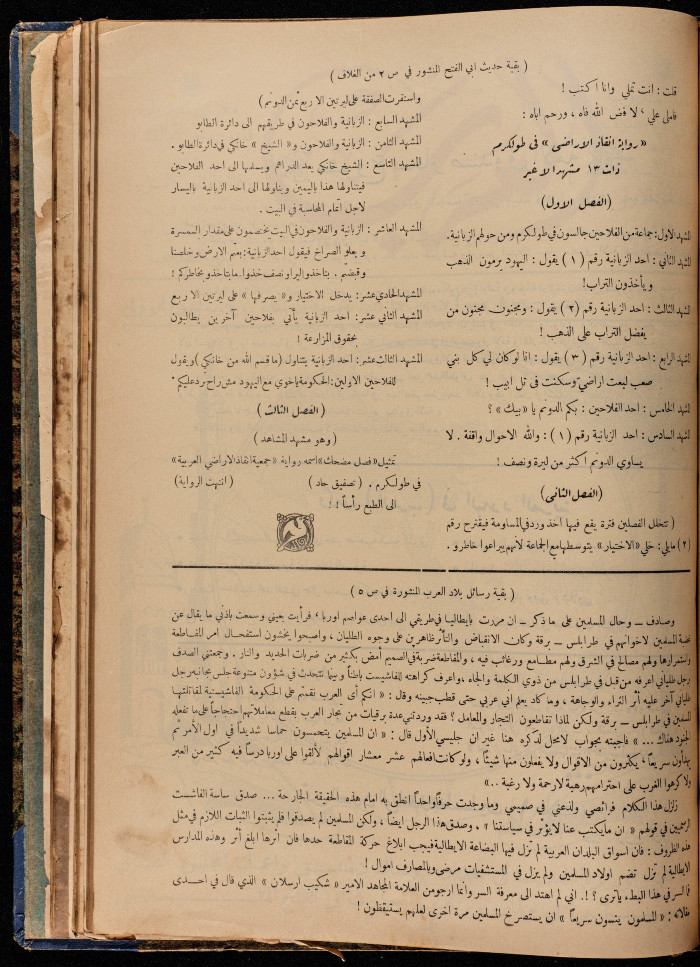 ( بقية حديث ابي الفتح المنشور في ص ٢ من الغلاف )
قلت : انت تملي وانا اكتب !
فأملى علي ، لا فض الله فاه ، ورحم اباه :
« رواية انقاذ الاراضى » فى طولكرم
ذات ١٣ مشهد الاغير
( الفصل الاول )
المشهد الاول : جماعة من الفلاحين جالسون في طولكرم ومن حولهم الزبانية .
المشهد الثاني : احد الزبانية رقم ( ١ ) يقول : اليهود يرمون الذهب
ويأخذون التراب !
المشهد الثالث : احد الزبانية رقم ( ٢ ) يقول : ومجنون مجنون من
يفضل التراب على الذهب !
المشهد الرابع : احد الزبانية رقم ( ٣ ) يقول : انا لو كان لي كل بني
صعب لبعت اراضيّ وسكنت فى تل ابيب !
المشهد الخامس : احد الفلاحين : بكم الدونم يا « بيك » ؟
المشهد السادس : احد الزبانية رقم ( ١ ) : والله الاحوال واقفة . لا
يساوي الدونم اكثر من ليرة ونصف !
( الفصل الثانى )
( تتخلل الفصلين فترة يقع فيها اخذ ورد في المساومة فيقترح رقم
( ٢ ) مايلي : خلي « الاختيار » يتوسطها مع الجماعة لأنهم يراعوا خاطرو .
واستقرت الصفقة على ليرتين الا ربع ثمن الدونم )
المشهد السابع : الزبانية والفلاحون في طريقهم الى دائرة الطابو
المشهد الثامن : الزبانية والفلاحون و « الشيخ » خانكي في دائرة الطابو .
المشهد التاسع : الشيخ خانكي يعد الدراهم ويسلمها الى احد الفلاحين
فيتناولها هذا باليمين ويناولها الى احد الزبانية باليسار
لاجل اتمام المحاسبة في البيت .
المشهد العاشر : الزبانية والفلاحون في البيت يختصمون على مقدار السمسرة
ويعلو الصراخ فيقول احد الزبانية : بعتم الارض وخلصنا
وقبضتم . بتاخذو ليرا ونصف خذوا . ما بتاخذو بخاطركم !
المشهد الحادي عشر : يدخل الاختيار و « يصرفها » على ليرتين الا ربع
المشهد الثاني عشر : احد الزبانية يأتي بفلاحين آخرين يطالبون
بحقوق المزارعة !
المشهد الثالث عشر : احد الزبانية يتناول ( ما قسم الله من خانكي ) ويقول
للفلاحين الاولين : الحكومة ياخوي مع اليهود مش راح ترد عليكم .
( الفصل الثالث )
( وهو مشهد المشاهد )
تمثيل « فصل مضحك » اسمه رواية « جمعية انقاذ الاراضي العربية »
في طولكرم . ( تصفيق حاد ) ( انتهت الرواية )
الى الطبع رأساً ! !
( بقية رسائل بلاد العرب المنشورة في ص ٥ )
وصادف ــ وحال المسلمين على ما ذكر ــ ان مررت بايطاليا في طريقي الى احدى عواصم اوربا ، فرأيت بعيني وسمعت باذني ما يقال عن
المسلمين لاخوانهم في طرابلس ــ برقة وكان الانقباض والتأثر ظاهرين على وجوه الطليان ، واصبحوا يخشون استفحال امر المقاطعة
واستمرارها ولهم مصالح في الشرق ولهم مطامع ورغائب فيه ، والمقاطعة ضربة في الصميم أمض بكثير من ضربات الحديد والنار . وجمعتني الصدف
برجل طلياني اعرفه من قبل في طرابلس من ذوي الكلمة والجاه ، واعرف كراهته للفاشيست باطناً وبينما نتحدث في شؤون متنوعة جلس بجانبه رجل
طلياني آخر عليه أثر الثراء والوجاهة ، وما كاد يعلم اني عربي حتى قطب جبينه وقال : « انكم أى العرب نقمتم على الحكومة الفاشيستية لمقاتلتها
المسلمين في طرابلس ــ برقة ولكن لماذا تقاطعون التجار والمعامل ؟ فقد وردتني عدة برقيات من تجار العرب بقطع معاملاتهم احتجاجاً على ما تفعله
الجنود هناك ... » فأجبته بجواب لا محل لذكره هنا غير ان جليسي الاول قال : « ان المسلمين يتحمسون حماسا شديداً في اول الأمر ثم
يهدأون سريعاً ، يكثرون من الاقوال ولا يفعلون منها شيئاً ، ولو كانت افعالهم عشر معشار اقوالهم لألقوا على اوربا درساً فيه كثير من العبر
ولا كرهوا الغرب على احترامهم رهبة لا رحمة ولا رغبة .. »
زلزل هذا الكلام فرائصي ولذعني في صميمي وما وجدت حرفاً واحداً انطق به امام هذه الحقيقة الجارحة ... صدق ساسة الفاشست
الرسميين في قولهم « ان ما يكتب عنا لا يؤثر في سياستنا » . وصدق هذا الرجل ايضاً ، ولكن المسلمين لم يصدقوا فلم يثبتوا الثبات اللازم في مثل
هذه الظروف : فان اسواق البلدان العربية لم تزل فيها البضاعة الايطالية فيجب ابلاغ حركة المقاطعة حدها فان اثرها ابلغ أثر وهذه المدارس
الايطالية لم تزل تضم اولاد المسلمين ولم يزل في المستشفيات مرضى وبالمصارف اموال !
فما السر في هذا البطء ياترى ؟ ! . اني لم اهتد الى معرفة السر وانما ارجو من العلامة المجاهد الامير « شكيب ارسلان » الذي قال في احدى
مقالاته : « المسلمون ينسون سريعاً » ان يستصرخ المسلمين مرة اخرى لعلهم يستيقظون !